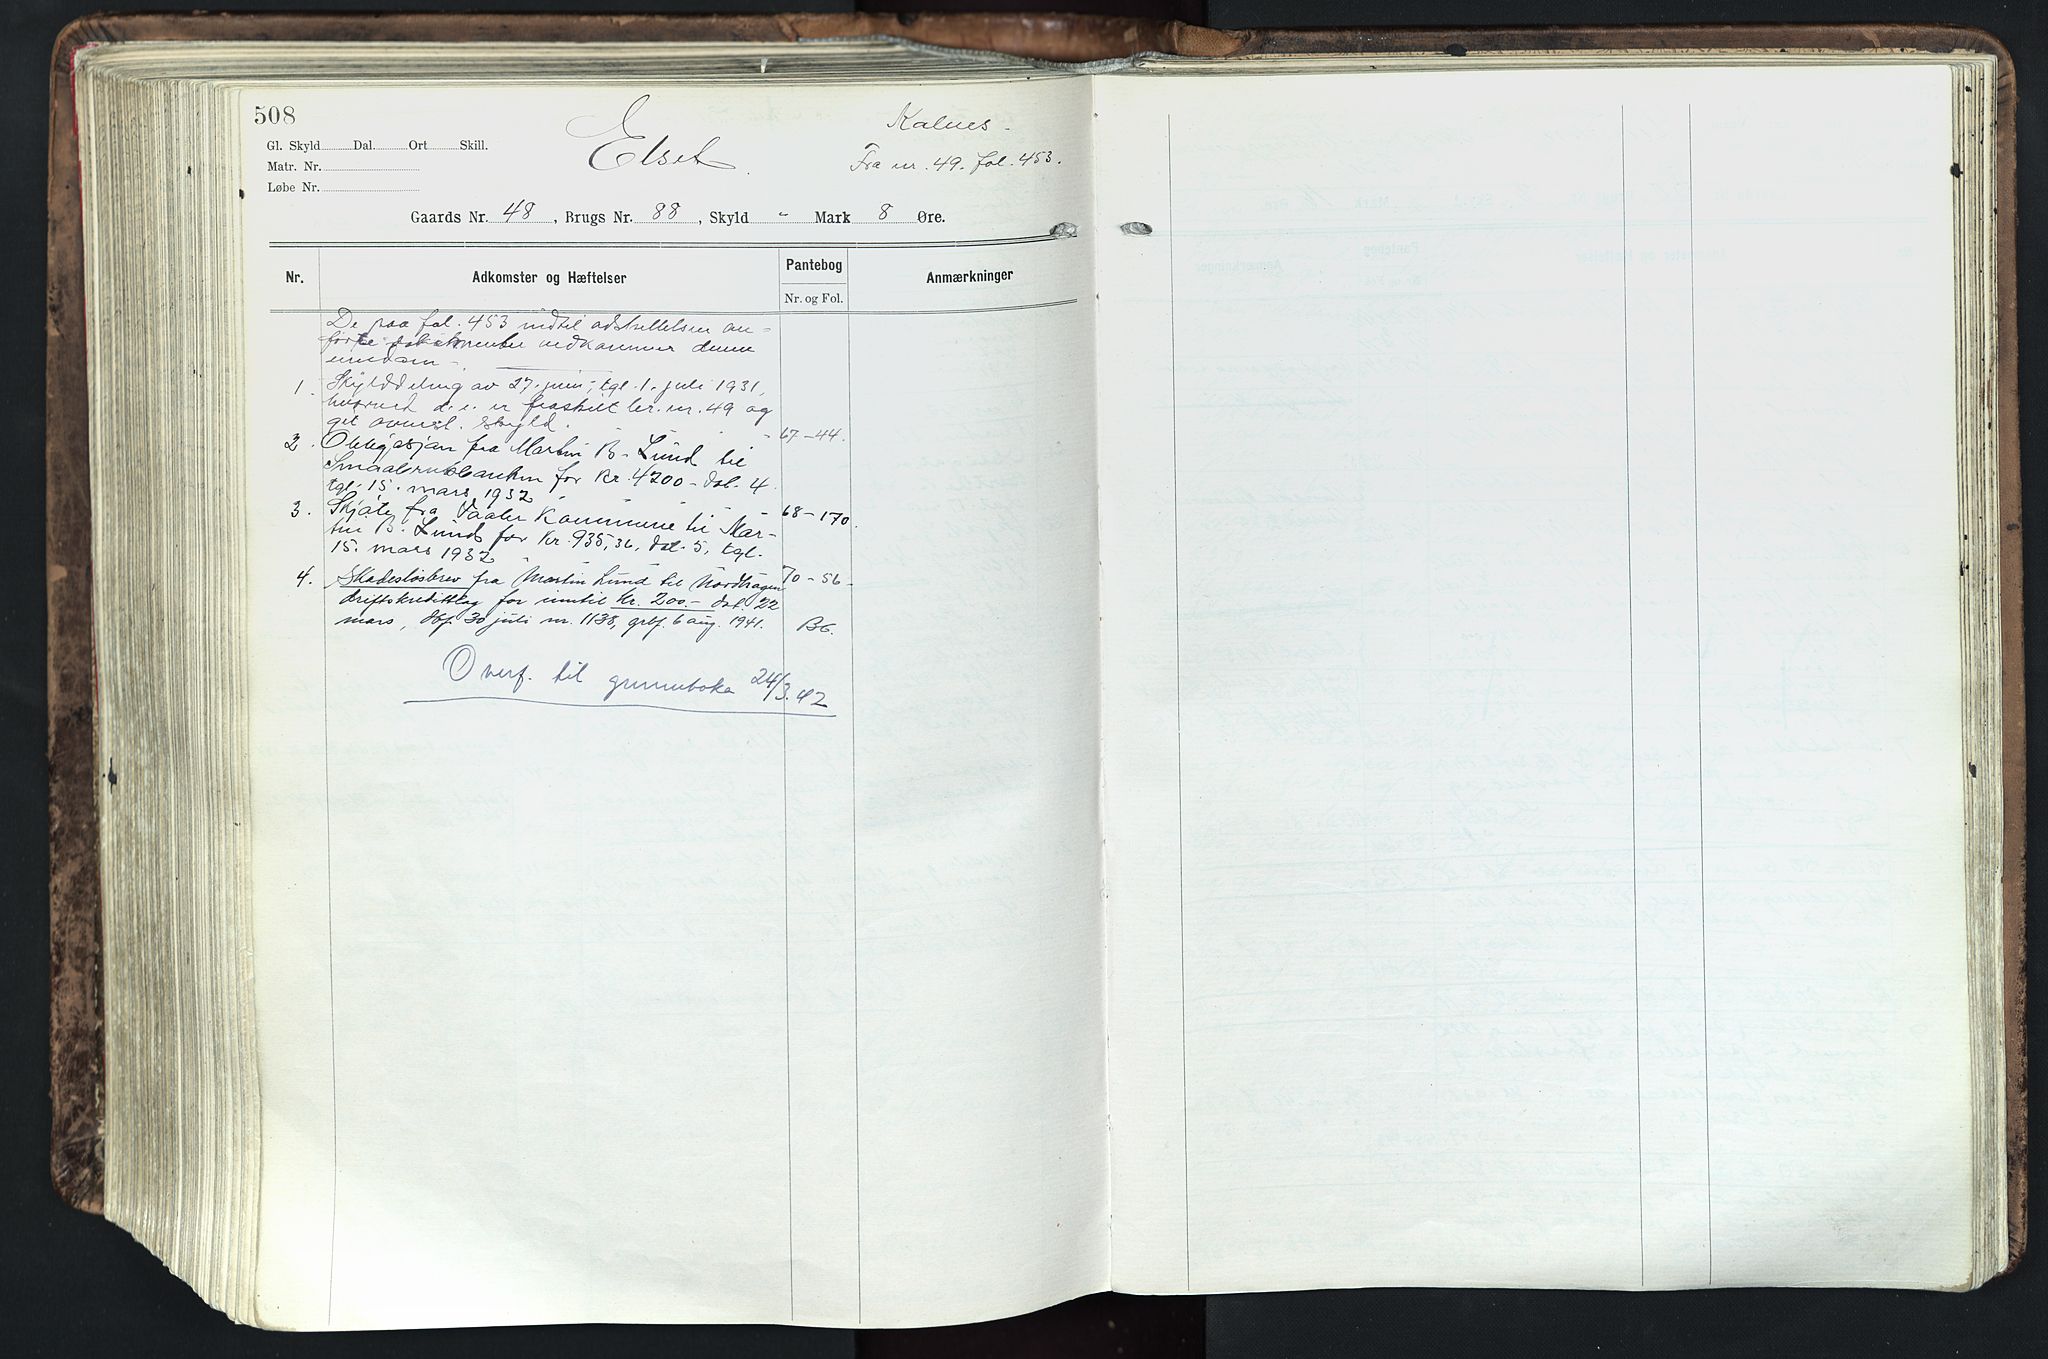 508
Elset
Kalnes -
Gl. Skyld Dal. Ort Skill.
Matr. Nr.
Løbe Nr.
Fra nr. 49. fol. 453.
Gaards Nr. 48, Brugs Nr. 88, Skyld " Mark 8 Øre.
Nr. Adkomster og Hæftelser Pantebog Anmærkninger
Nr. og Fol.
De paa fol. 453 indtil adskillelsen an-
førte dokumenter vedkommer denne
eiendom.
1. Skylddeling av 27. juni, tgl. 1. juli 1931,
hvorved d. e. er fraskilt br. nr. 49 og
git ovenst. skyld. 67-44.
2. Obligasjon fra Martin B. Lund til
Smaabrukbanken for Kr. 4200 - dat. 4.
tgl. 15. mars 1932 68-170.
3. Skjøte fra Vaaler Kommune til Mar-
tin B. Lund for Kr. 935,36, dat. 5, tgl.
15. mars 1932 70-56-
4. Skadesløsbrev fra Martin Lund til Nordhagen
driftskredittlag for inntil Kr. 200.- dat. 22
mars, dbf. 30 juli nr. 1138, grbf. 6 aug. 1941. B6.
Overf. til grunnboka 24/3.42